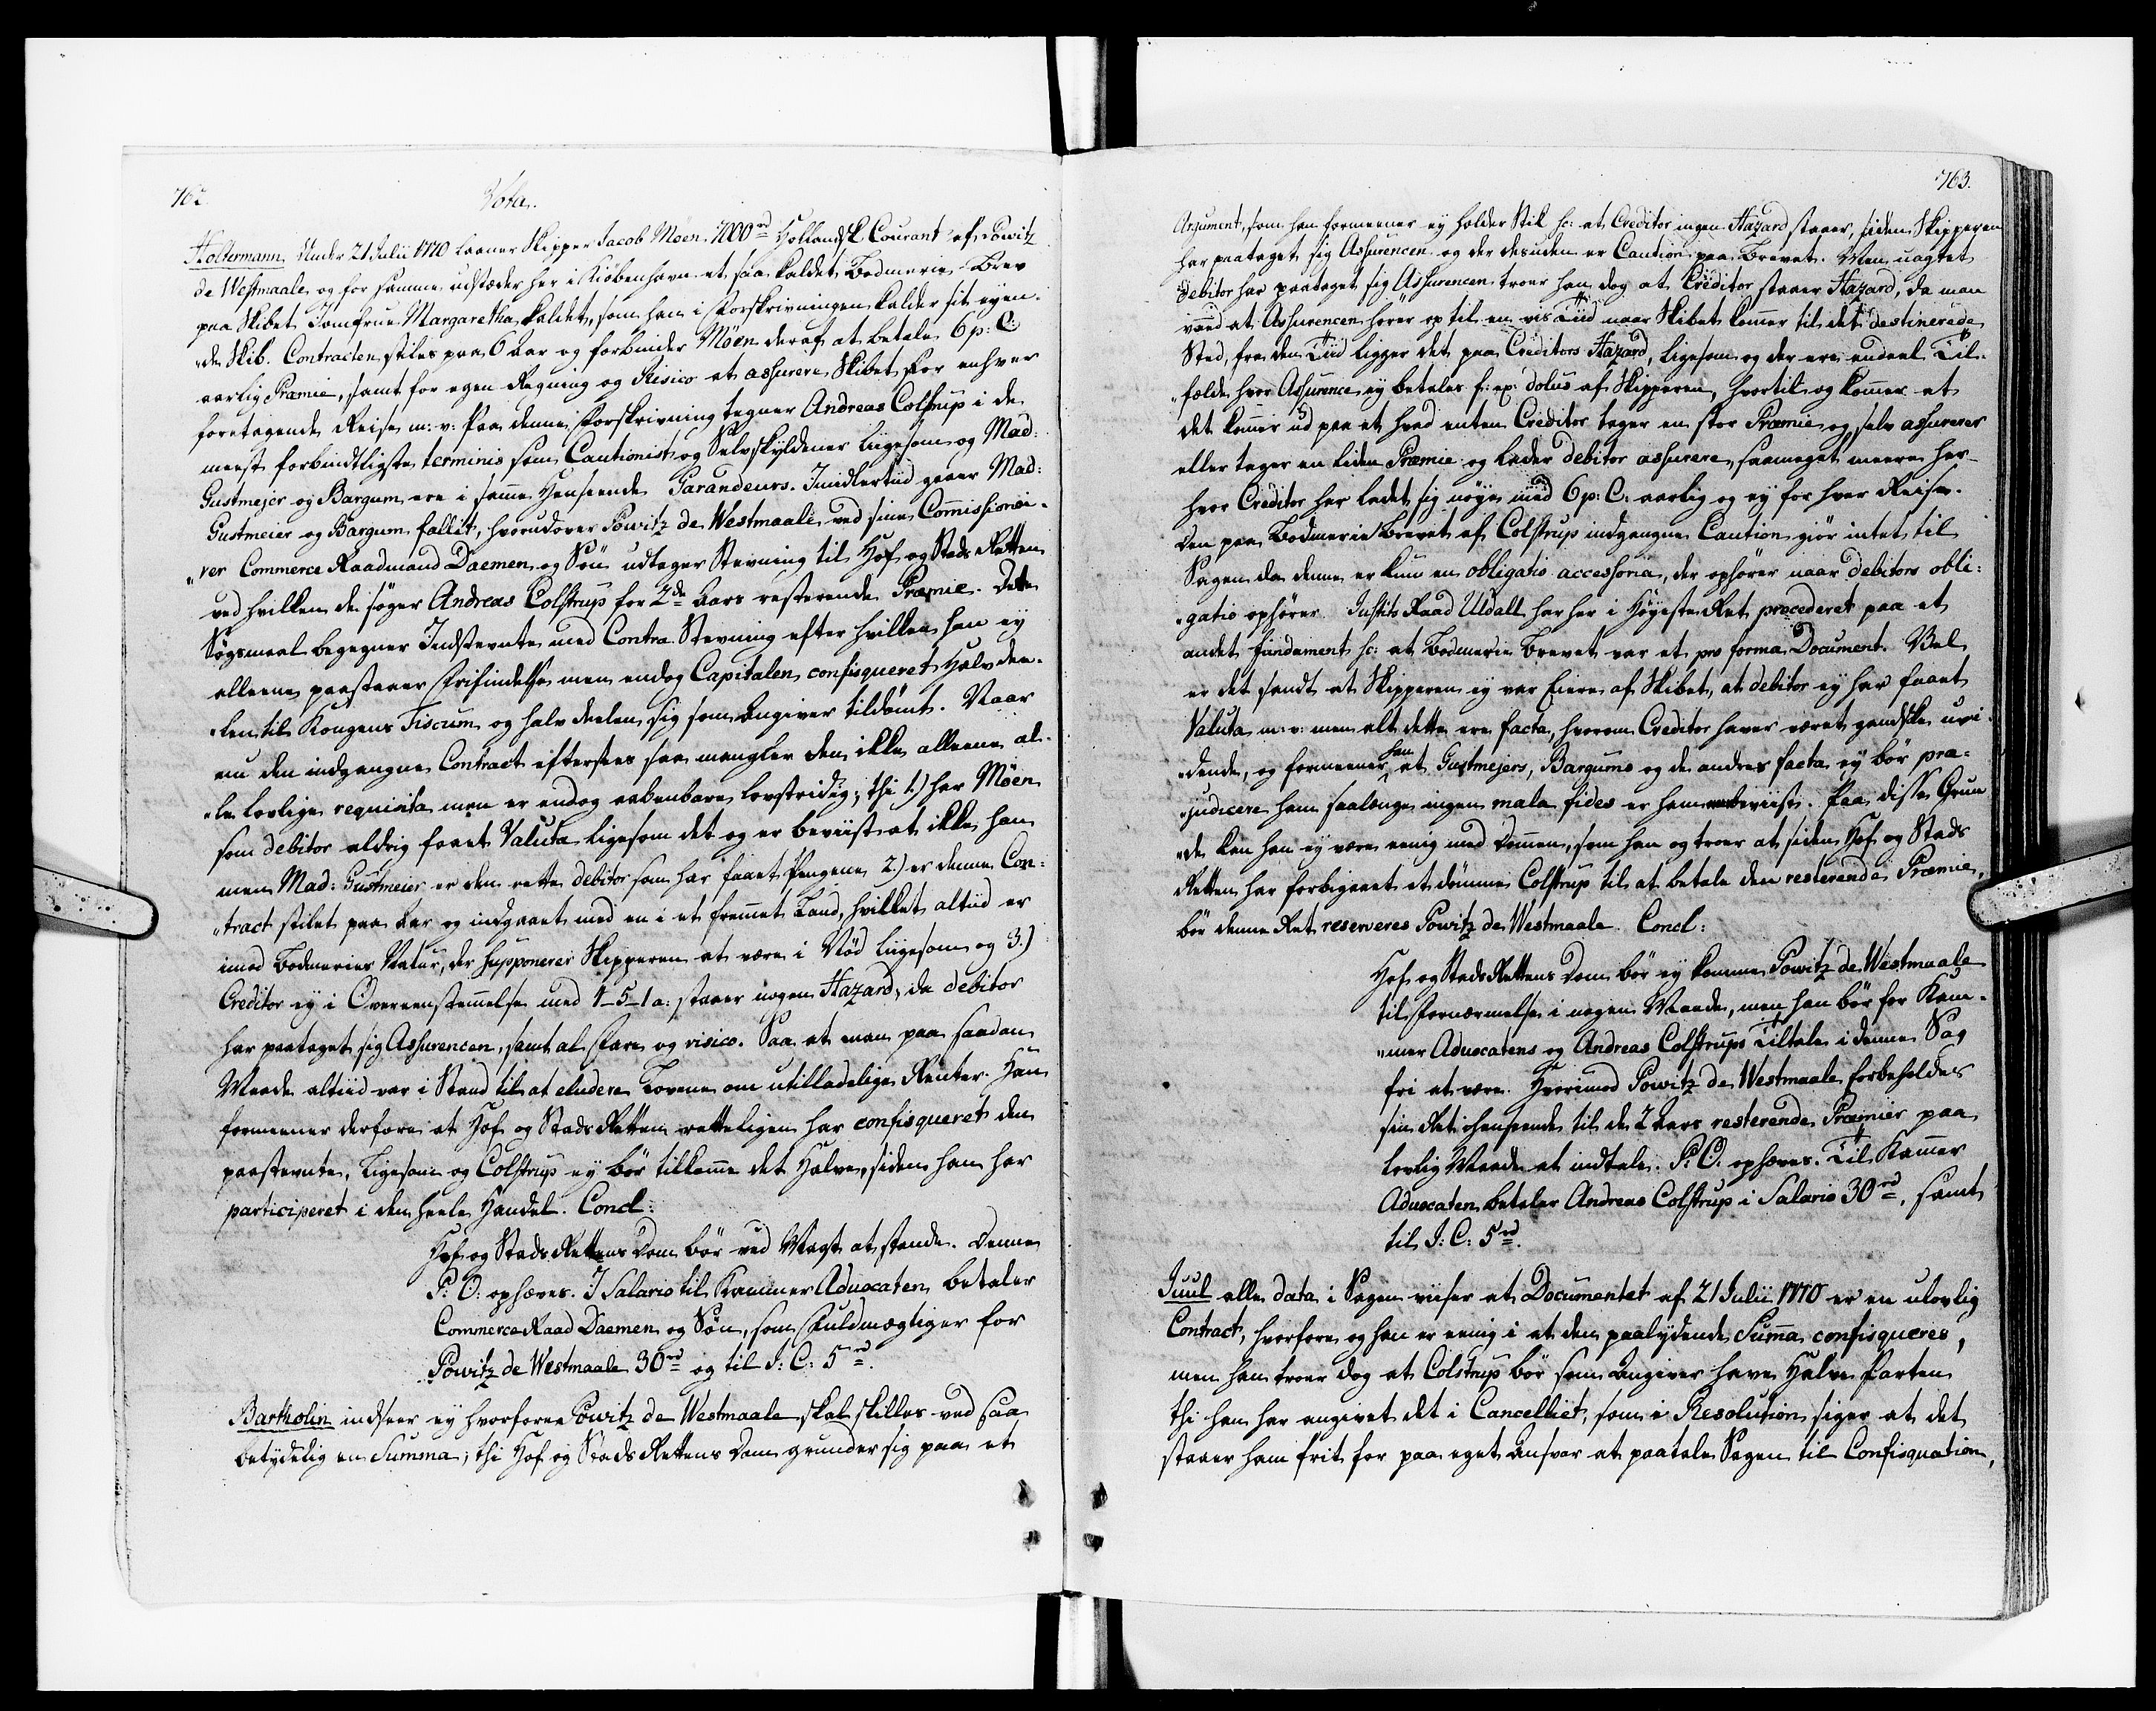 762.
Vota.
Holtermann. Under 21 Julii 1770 laaner Skipper Jacob Möen 7000 rd Hollandsk Courant af Powitz
de Westmaale og for samme udstæder her i Kiöbenhavn et saa kaldet Bodmerie-Brev
paa Skibet Jomfrue Margaretha kaldet, som han i Forskrivningen kalder sit eyen-
„de Skib. Contracten stiles paa 6 Aar og forbinder Möen deraf at betale 6 p: C:
aarlig Præmie, samt for egen Regning og Risico at assurere Skibet for enhver
foretagende Reise m: v: Paa denne Forskrivning tegner Andreas Colstrup i de
meest forbindtligste terminis som Cautionist og Selvskyldener liigesom og Mad:
Gustmejer og Bargum ere i samme Henseende Garandeurs. Imidlertiid gaaer Mad:
Gustmeier og Bargum fallit, hvorudover Powitz de Westmaale ved sine Commissionai-
„rer Commerce Raadmand Daemen og Søn udtager Stevning til Hof og Stads Retten
ved hvilken de søger Andreas Colstrup for 2de Aars resterende Præmie. Dette
Søgsmaal begegner Indstevnte med Contra Stevning efter hvilken han ey
alleene paastaaer Frifindelse men endog Capitalen confisqueret Halvdee-
„len til Kongens Fiscum og halvdeelen sig som Angiver tildömt. Naar
nu den indgangne Contract eftersees saa mangler den ikke alleene al-
„le lovlige requisita men er endog aabenbare lovstridig; thi 1.) har Möen
som debitor aldrig faaet Valuta ligesom det og er beviist at ikke han
men Mad: Gustmeier er den rette debitor som har faaet Pengene 2.) er denne Con-
„tract stilet paa Aar og indgaaet med en i et fremmet Land, hvilket altiid er
imod Bodmeries Natur, der supponerer Skipperen at være i Nöd liigesom og 3.)
Creditor ey i Overeenstemmelse med 4-5-1 a: staaer nogen Hazard, da debitor
har paataget sig Assurencen, samt al Fare og risico. Saa at man paa saadan
Maade altiid var i Stand til at eludere Lovene om utilladelige Renter. Han
formeener derfore at Hof og Stads Retten retteligen har confisqueret den
paastevnte, Ligesom og Colstrup ey bör tilkomme det Halve, siden han har
participeret i den heele Handel. Concl:
Hof og Stads Rettens Dom bör ved Magt at stande. Denne
P: O: ophæves. I Salario til Kammer Advocaten betaler
Commerce Raad Daemen og Søn, som Fuldmægtiger for
Powitz de Westmaale 30 rd og til J: C: 5 rd.
Bartholin indseer ey hvorfore Powitz de Westmaale skal skilles ved saa
betydelig en Summa; thi Hof og Stads Rettens Dom grunder sig paa et
763.
Argument, som han formeener ey holder Stik sc: at Creditor ingen Hazard staaer, siden Skipperen
har paataget sig Assurencen og der desuden er Caution paa Brevet. Men uagtet
debitor har paataget sig Assurencen troer han dog at Creditor staaer Hazard, da man
veed at Assurencen hörer op til en vis Tiid naar Skibet kommer til det destinerede
Sted, fra den Tiid ligger det paa Creditors Hazard, ligesom og der ere endeel Til-
„fælde hvor Assurence ey betales f: ex: dolus af Skipperen, hvortil og kommer at
det kommer ud paa et hvad enten Creditor tager en stor Præmie og selv assurerer
eller tager en liden Præmie og lader debitor assurere, saameget meere her-
hvor Creditor har ladet sig nöye med 6 p: C: aarlig og ey for hver Reise.
Den paa Bodmerie Brevet af Colstrup indgangne Caution giör intet til
Sagen da denne er kun en obligatio accessoria, der ophörer naar debitors obli-
„gatio ophörer. Justits Raad Uldall har her i Höyeste Ret procederet paa et
andet fundament sc: at Bodmerie Brevet var et pro forma Document. Vel
er det sandt at Skipperen ey var Eiere af Skibet, at debitor ey har faaet
Valuta m: v: men alt dette ere facta, hvorom Creditor haver været gandske uvi-
„dende, og formeener han at Gustmejers, Bargums og de andres facta ey bör præ-
„judicere ham saalænge ingen mala fides er ham beviist. Paa disse Grun-
„de kan han ey være eenig med Dommen, som han og troer at siden Hof og Stads
Retten har forbigaaet at dömme Colstrup til at betale den resterende Præmie,
bör denne Ret reserveres Powitz de Westmaale. Concl:
Hof og Stads Rettens Dom bör ey komme Powitz de Westmaale
til Fornærmelse i nogen Maade, men han bör for Kam-
„mer Advocatens og Andreas Colstrups Tiltale i denne Sag
fri at være. Hvorimod Powitz de Westmaale forbeholdes
sin Ret i henseende til de 2 Aars resterende Præmier paa
lovlig Maade at indtale. P: O: ophæves. Til Kammer
Advocaten betaler Andreas Colstrup i Salario 30 rd, samt
til J: C: 5 rd.
Juul alle data i Sagen viiser at Documentet af 21 Julii 1770 er en ulovlig
Contract, hvorfore og han er eenig i at den paalydende Summa confisqueres,
men han troer dog at Colstrup bör som Angiver have Halve Parten
thi han har angivet det i Cancelliet, som i Resolution siger at det
staaer ham frit for paa eget Ansvar at paatale Sagen til Confisquation,